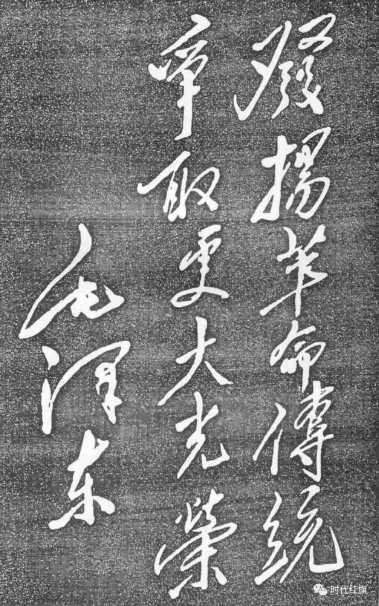 發揚革命傳統
爭取更大光榮
毛泽东
时代红旗